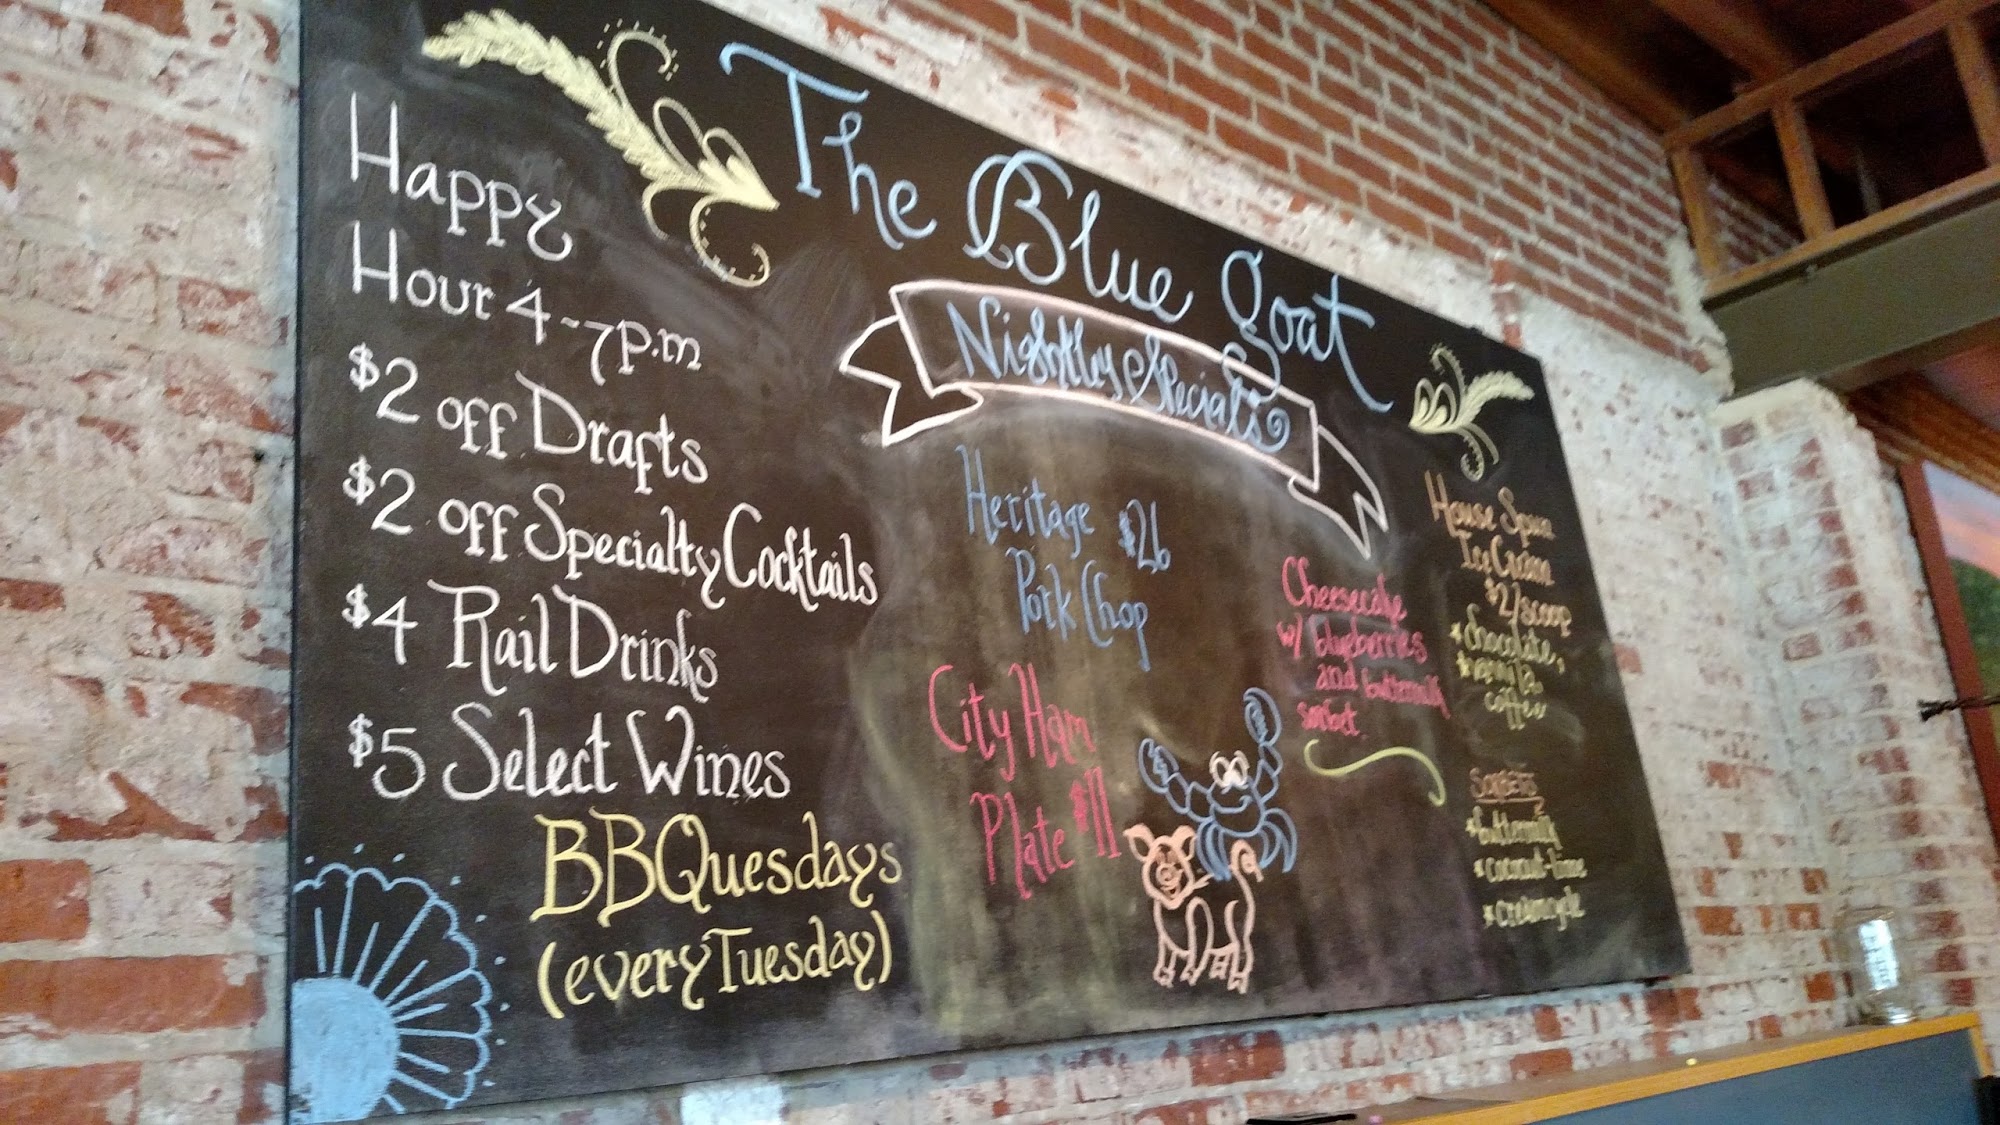 The Blue Goat
Nightly Specials
Happy
Hour 4-7p.m
$2 off Drafts
$2 off Specialty Cocktails
$4 Rail Drinks
$5 Select Wines
BBQuesdays
(every Tuesday)
Heritage $26
Pork Chop
City Ham
Plate $11
Cheesecake
w/ blueberries
and buttermilk
sorbet
House Spun
Ice Cream
$2/scoop
*chocolate,
*vanilla,
coffee
SORBETS
*buttermilk
*coconut-lime
*creamcycle